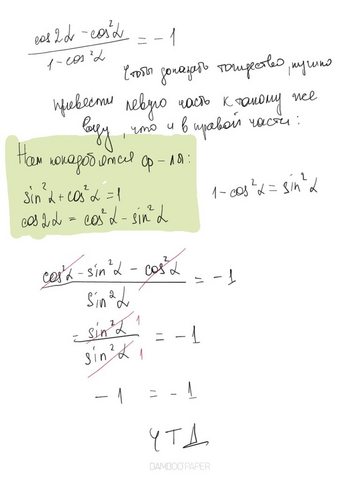 cos2α - cos²α / 1 - cos²α = -1
Чтобы доказать тождество, нужно
привести левую часть к такому же
виду, что и в правой части:
Нам понадобятся ф-ля:
sin²α + cos²α = 1
1 - cos²α = sin²α
cos2α = cos²α - sin²α
cos²α - sin²α - cos²α / sin²α = -1
= sin²α 1 / sin²α 1 = -1
-1 = -1
ЧТД
BAMBOO PAPER